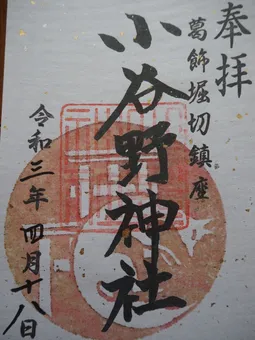 奉拝
葛飾堀切鎮座
小谷野神社
令和三年 四月十八日